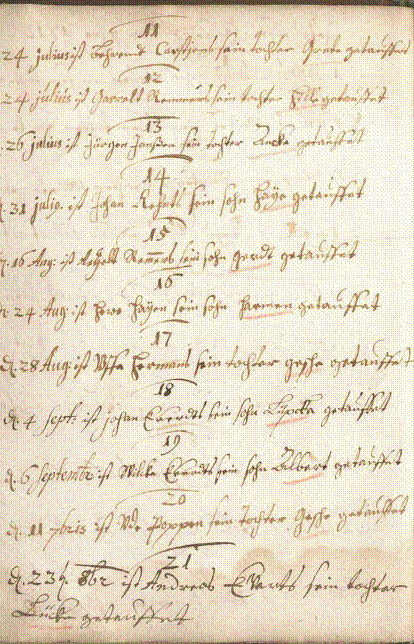 11
24 julius ist Behrendt Carstzens sein tochter Grete getauffet
12
24 julius ist Garrelt Remmers sein tochter Hille getauffet
13
26 julius ist Jürgen Janßen sein tochter Ancke getauffet
14
d. 31 julij. ist Johan Rehnts sein sohn Haye getauffet
15
d. 16 Aug: ist Remers sein sohn gerdt getauffet
16
d. 24 Aug: ist Howe Hayen sein sohn Harmen getauffet
17
d. 28 Aug ist Uffke Hermans sein tochter gesche getauffet
18
d. 4 sept: ist johan Everdts sein sohn getauffet
19
d. 6 septembr ist Wilke Everdts sein sohn Albert getauffet
20
d. 11 7bris ist Ude Poppen sein tochter Gesche getauffet
21
d. 23t. 8br ist Andreas Everts sein tochter
Lücke getauffet